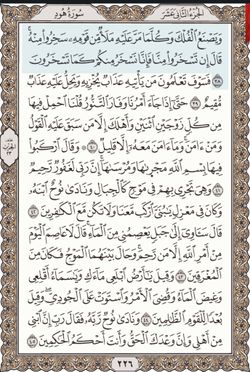 الجزء الثاني عشر
سورة هود
وَيَصْنَعُ الْفُلْكَ وَكُلَّمَا مَرَّ عَلَيْهِ مَلَأٌ مِّن قَوْمِهِ سَخِرُوا مِنْهُ
قَالَ إِن تَسْخَرُوا مِنَّا فَإِنَّا نَسْخَرُ مِنكُمْ كَمَا تَسْخَرُونَ
٣٨ فَسَوْفَ تَعْلَمُونَ مَن يَأْتِيهِ عَذَابٌ يُخْزِيهِ وَيَحِلُّ عَلَيْهِ عَذَابٌ
مُّقِيمٌ ٣٩ حَتَّىٰ إِذَا جَاءَ أَمْرُنَا وَفَارَ التَّنُّورُ قُلْنَا احْمِلْ فِيهَا
مِن كُلٍّ زَوْجَيْنِ اثْنَيْنِ وَأَهْلَكَ إِلَّا مَن سَبَقَ عَلَيْهِ الْقَوْلُ
وَمَنْ آمَنَ وَمَا آمَنَ مَعَهُ إِلَّا قَلِيلٌ ٤٠ وَقَالَ ارْكَبُوا
فِيهَا بِسْمِ اللَّهِ مَجْرَاهَا وَمُرْسَاهَا إِنَّ رَبِّي لَغَفُورٌ رَّحِيمٌ
٤١ وَهِيَ تَجْرِي بِهِمْ فِي مَوْجٍ كَالْجِبَالِ وَنَادَىٰ نُوحٌ ابْنَهُ
وَكَانَ فِي مَعْزِلٍ يَا بُنَيَّ ارْكَب مَّعَنَا وَلَا تَكُن مَّعَ الْكَافِرِينَ ٤٢
قَالَ سَآوِي إِلَىٰ جَبَلٍ يَعْصِمُنِي مِنَ الْمَاءِ قَالَ لَا عَاصِمَ الْيَوْمَ
مِنْ أَمْرِ اللَّهِ إِلَّا مَن رَّحِمَ وَحَالَ بَيْنَهُمَا الْمَوْجُ فَكَانَ مِنَ
الْمُغْرَقِينَ ٤٣ وَقِيلَ يَا أَرْضُ ابْلَعِي مَاءَكِ وَيَا سَمَاءُ أَقْلِعِي
وَغِيضَ الْمَاءُ وَقُضِيَ الْأَمْرُ وَاسْتَوَتْ عَلَى الْجُودِيِّ وَقِيلَ بُعْدًا
لِّلْقَوْمِ الظَّالِمِينَ ٤٤ وَنَادَىٰ نُوحٌ رَّبَّهُ فَقَالَ رَبِّ إِنَّ ابْنِي
مِنْ أَهْلِي وَإِنَّ وَعْدَكَ الْحَقُّ وَأَنتَ أَحْكَمُ الْحَاكِمِينَ ٤٥
٢٢٦